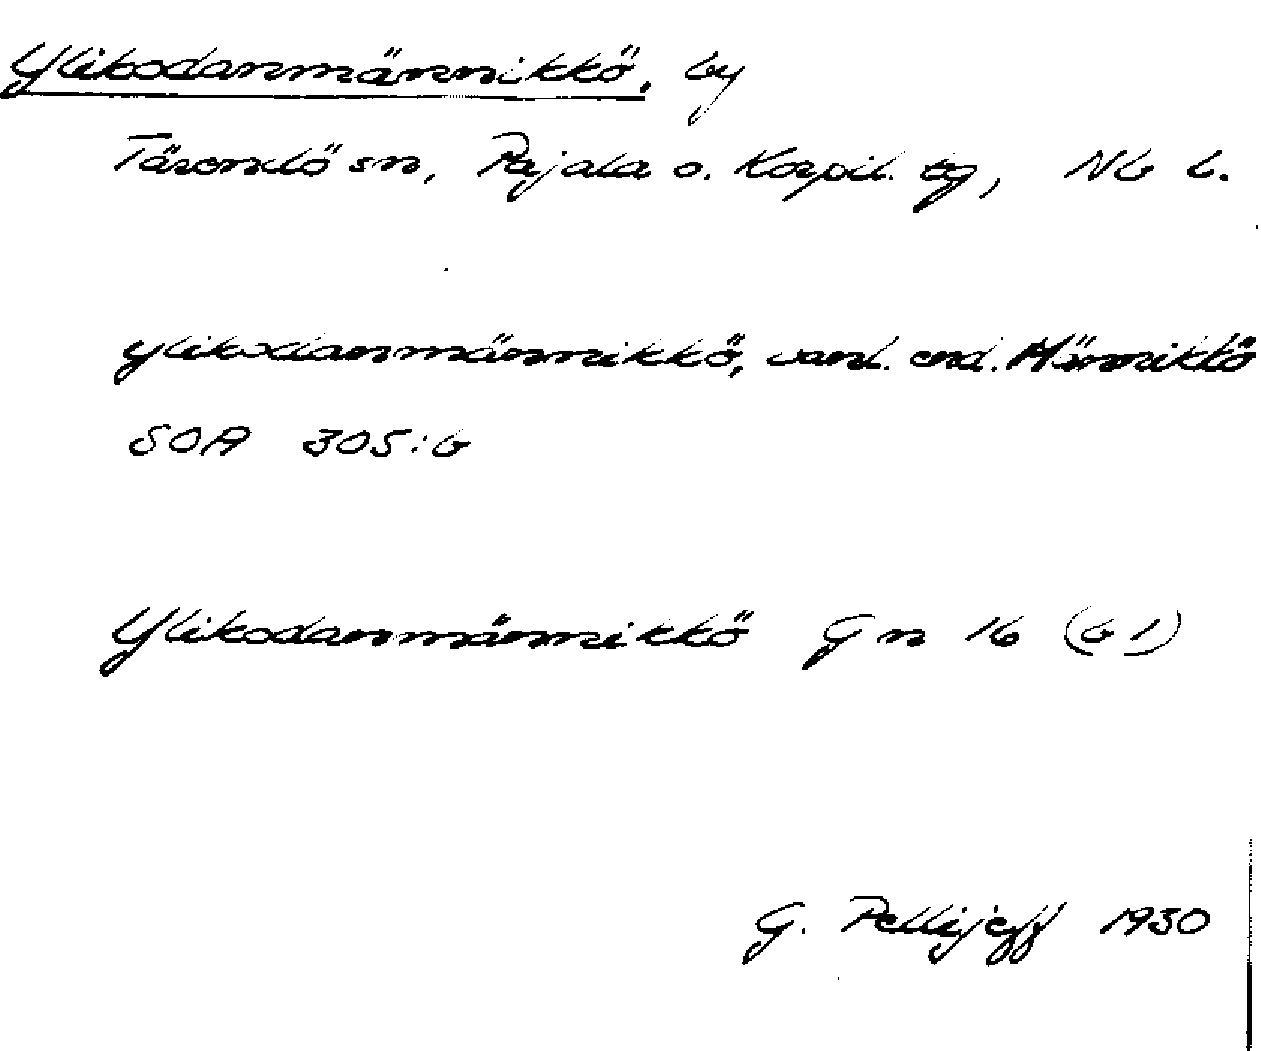 Ylikodanmännikkö, by
Tärendö sn, Pajala o. Korpil. tg, Nb l.
ylikodanmännikkö, vanl. end. Männikkö
SOA 305:6
Ylikodanmännikkö Gn 16 (61)
G. Pellijeff 1930